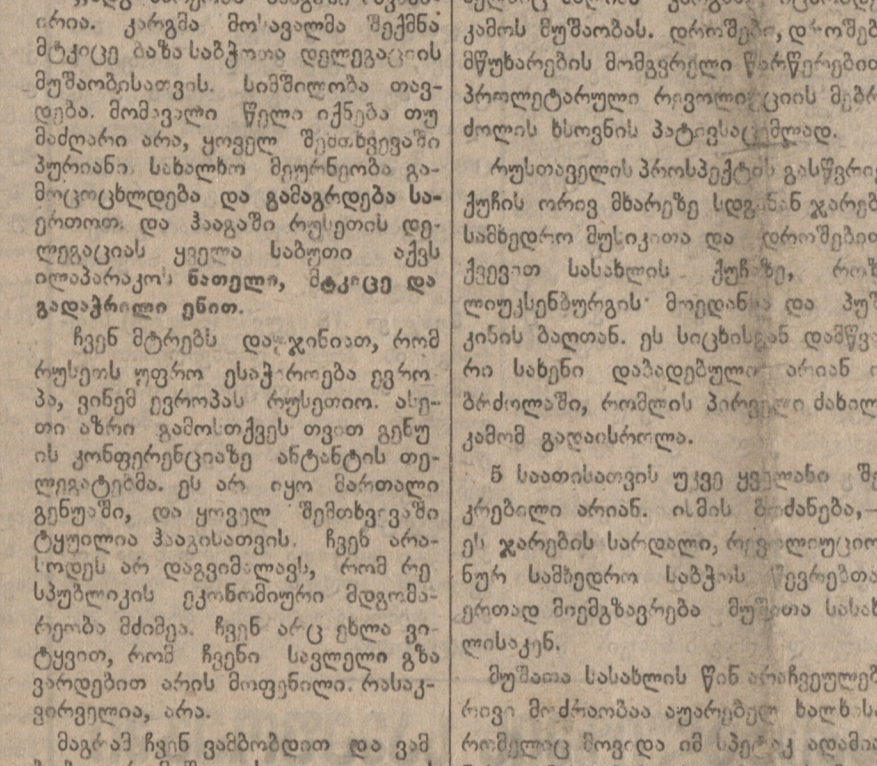 ირია. კარგმა მოსავალმა შექმნა
მტკიცე ბაზა საბჭოთა დელეგაციის
მუშაობისათვის. სიმშილობა თავ-
დება. მომავალი წელი იქნება თუ
მაძღარი არა, ყოველ შემთხვევაში
პურიანი. სახალხო მეურნეობა გა-
მოცოცხლდება და გამაგრდება სა-
ერთოთ. და ჰააგაში რუსეთის დე-
ლეგაციას ყველა საბუთი აქვს
ილაპარაკოს ნათელი, მტკიცე და
გადაჭრილი ენით.
ჩვენ მტრებს დაუჟინიათ, რომ
რუსეთს უფრო ესაჭიროება ევრო
პა, ვინემ ევროპას რუსეთიო. ასე-
თი აზრი გამოსთქვეს თვით გენუ
ის კონფერენციაზე ანტანტის დე-
ლეგატებმა. ეს არ იყო მართალი
გენუაში, და ყოველ შემთხვევაში
ტყუილია ჰააგისათვის. ჩვენ არა-
სოდეს არ დაგვიმალავს, რომ რე
სპუბლიკის ეკონომიური მდგომა-
რეობა მძიმეა. ჩვენ არც ეხლა ვი-
ტყვით, რომ ჩვენი სავლელი გზა
ვარდებით არის მოფენილი. რასაკ-
ვირველია, არა.
მაგრამ ჩვენ ვამბობდით და ვამ
კამოს მუშაობას. დროშები, დროშებ
მწუხარების მომგვრელი წარწერებით
პროლეტარული რევოლიუციის მებრ
ძოლის ხსოვნის პატივსაცემლად.
რუსთაველის პროსპექტის გასწვრი
ქუჩის ორივ მხარეზე სდგანან ჯარებ
სამხედრო მუსიკითა და დროშებით
ქვევით სასახლის ქუჩაზე, როზ
ლიუკსენბურგის მოედანსა და პუშ
კინის ბაღთან. ეს სიცხისგან დამწვა
რი სახენი დაბადებული არიან
ბრძოლაში, რომლის პირველი ძახილ
კამომ გადაისროლა.
5 საათისათვის უკვე ყველანი შე
კრებილი არიან. ისმის ბრძანება,—
ეს ჯარების სარდალი, რევოლიუციო
ნურ სამხედრო საბჭოს წევრებთა
ერთად მიემგზავრება მუშათა სასახ
ლისაკენ.
მუშათა სასახლის წინ არაჩვეულებ
რივი მოძრაობაა აუარებელ ხალხსა
რომელიც მოვიდა იმ სპეტაკ ადამია